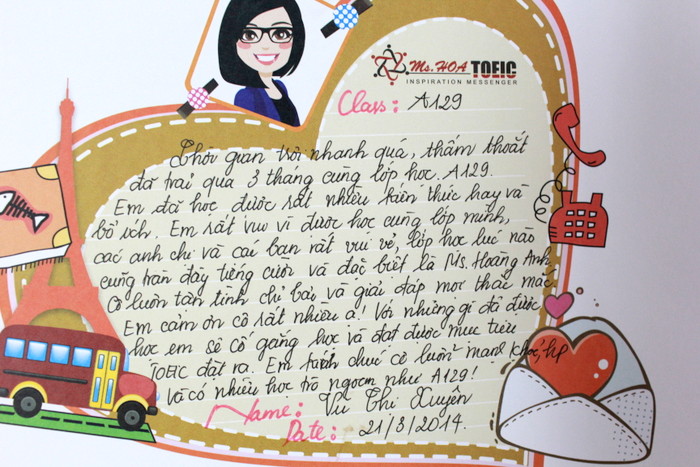 Ms. HOA TOEIC
INSPIRATION MESSENGER
Class: A129
Thời gian trôi nhanh quá, thấm thoắt
đã trải qua 3 tháng cùng lớp học A129.
Em đã học được rất nhiều kiến thức hay và
bổ ích. Em rất vui vì được học cùng lớp mình,
các anh chị và các bạn rất vui vẻ, lớp học lúc nào
cũng tràn đầy tiếng cười và đặc biệt là Ms. Hoàng Anh
Cô luôn tận tình chỉ bảo và giải đáp mọi thắc mắc
Em cảm ơn cô rất nhiều ạ! Với những gì đã được
học em sẽ cố gắng học và đạt được mục tiêu
TOEIC đặt ra. Em chúc cô luôn mạnh khỏe, hp
và có nhiều học trò ngoan như A129!
Name: Vũ Thị Xuyên
Date: 21/3/2014.